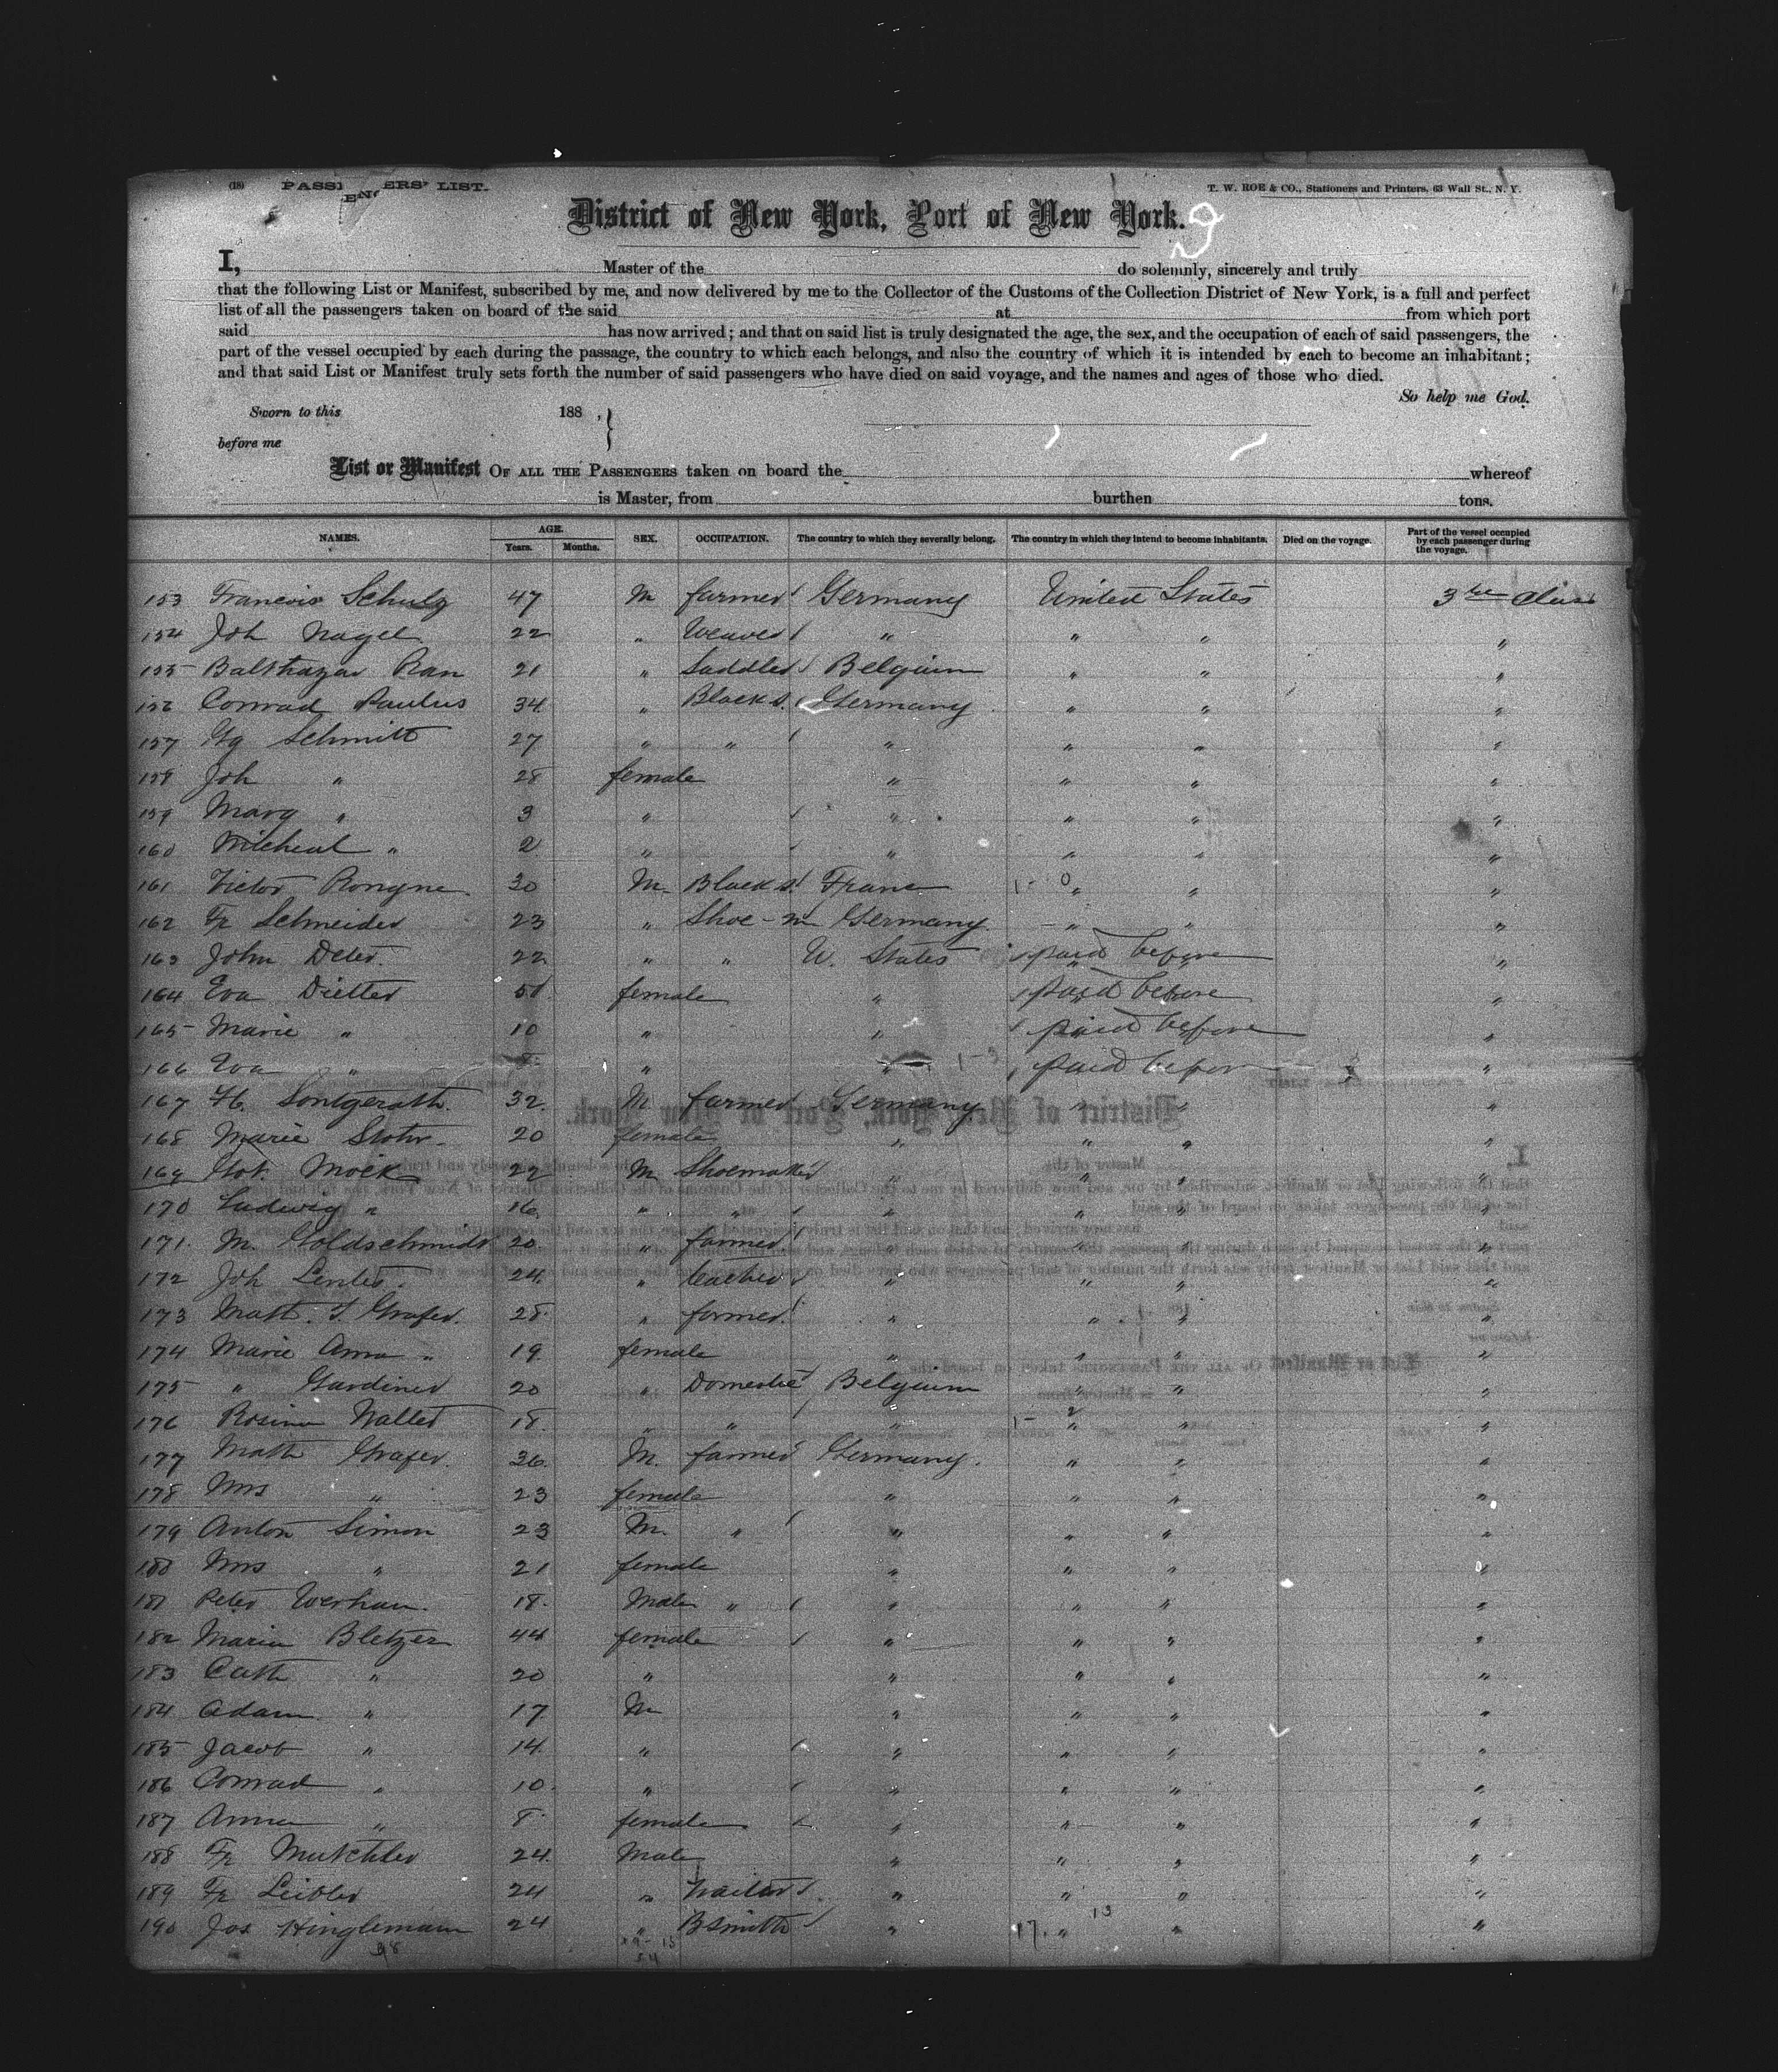 (18) PASSENGERS' LIST. T. W. ROE & CO., Stationers and Printers, 63 Wall St., N. Y.
District of New York, Port of New York. 9
I, Master of the do solemnly, sincerely and truly
that the following List or Manifest, subscribed by me, and now delivered by me to the Collector of the Customs of the Collection District of New York, is a full and perfect
list of all the passengers taken on board of the said at from which port
said has now arrived; and that on said list is truly designated the age, the sex, and the occupation of each of said passengers, the
part of the vessel occupied by each during the passage, the country to which each belongs, and also the country of which it is intended by each to become an inhabitant;
and that said List or Manifest truly sets forth the number of said passengers who have died on said voyage, and the names and ages of those who died.
So help me God.
Sworn to this 188 ,
before me
List or Manifest OF ALL THE PASSENGERS taken on board the whereof
is Master, from burthen tons.
NAMES. AGE. Years. Months. SEX. OCCUPATION. The country to which they severally belong. The country in which they intend to become inhabitants. Died on the voyage. Part of the vessel occupied by each passenger during the voyage.
153 Francois Schulz 47 M farmer Germany United States 3 class
154 Joh Nagel 22 " Weaver " " " "
155 Balthazar Ran 21 " Saddler Belgium " " "
156 Conrad Paulus 34 " Blacks. Germany " " "
157 Gg Schmitt 27 " " " " " "
158 Joh " 28 female " " " "
159 Marg " 3 " " " " "
160 Micheal " 2 " " " " "
161 Victor Rongne 30 M Blacks. Franc 1 - 0 " " "
162 Fr Schneider 23 " Shoe-m Germany " " "
163 John Deter. 22 " " U. States paid before "
164 Eva Dietter female " paid before "
165 Marie " 10 " " paid before "
166 Eva " 8 " " paid before "
167 H. Sontgerath. 32. M farmer Germany " " "
168 Marie Stohr 20 female " " " "
169 Got. Moek 22 M Shoemaker " " " "
170 Ludwig " 16 " " " " " "
171. M. Goldschmidt 20. " farmer " " " "
172 Joh Lenter. 24. " teacher " " " "
173 Math. J. Grafer. 28. " farmer. " " " "
174 Marie Anna " 19. female " " " "
175 " Gardiner 20 " Domestic Belgium " " "
176 Rosina Walter 18. " " " 1- 2 " " "
177 Math Grafer. 36. M. farmer Germany. " " "
178 Mrs " 23 female " " " "
179 Anton Simon 23 M. " " " " "
180 Mrs " 21 female " " " "
181 Peter Werhan. 18. Male " " " " "
182 Maria Bletzer 44 female " " " "
183 Cath " 20 " " " " "
184 Adam " 17. M " " " "
185 Jacob " 14. " " " " "
186 Conrad " 10. " " " " "
187 Anna " 8. female " " " "
188 Fr Mutchler 24. Male " " " "
189 Fr Leibler 24 " " " " "
190 Jos Hinglemann 24 " Bsmith " 17. " 13 " "